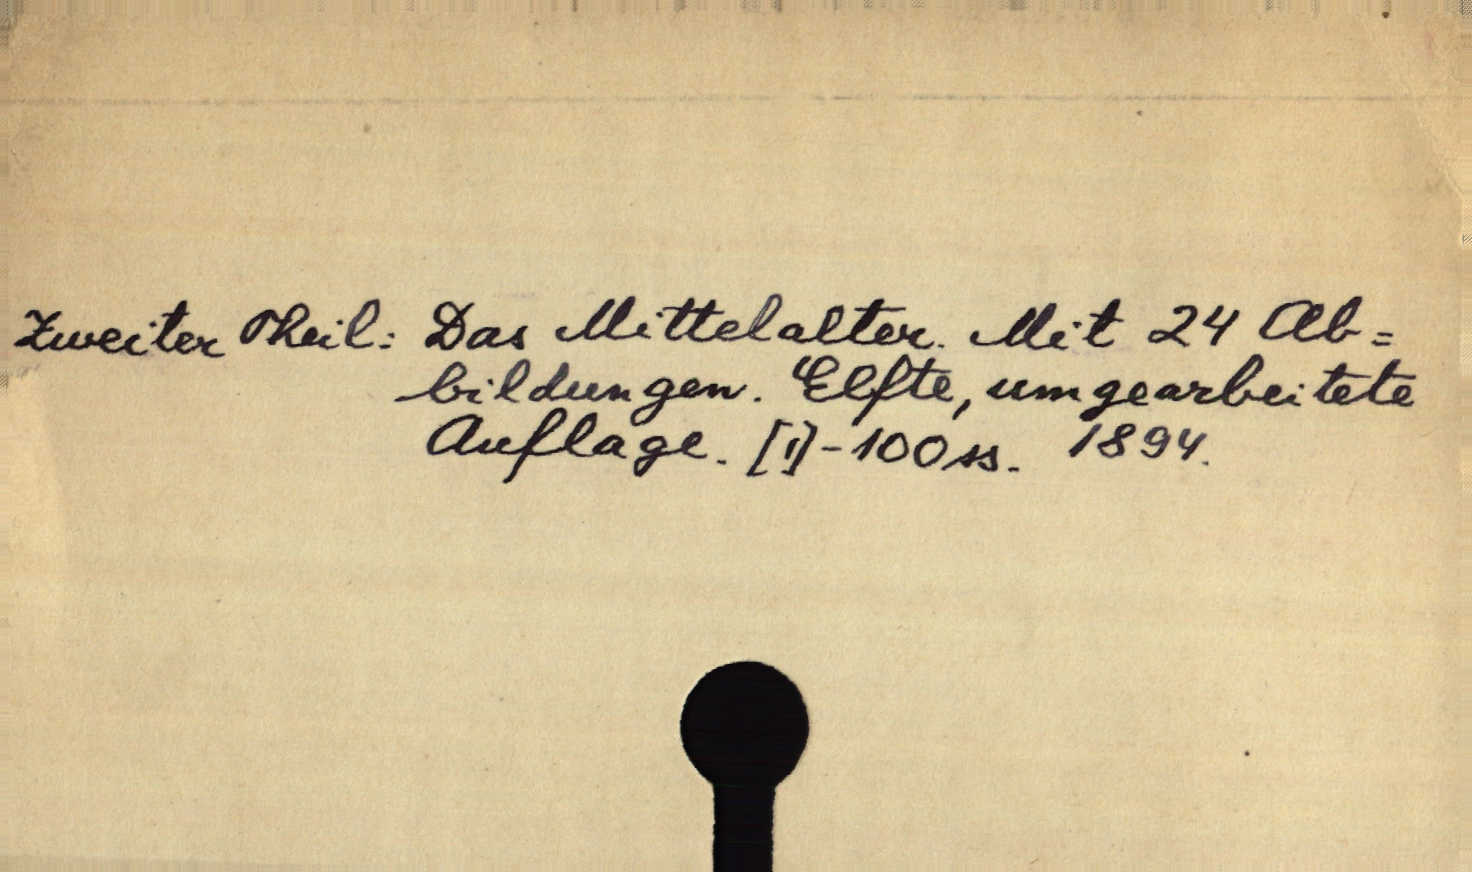 Zweiter Theil: Das Mittelalter. Mit 24 Ab=
bildungen. Elfte, umgearbeitete
Auflage. [1]-100 ss. 1894.